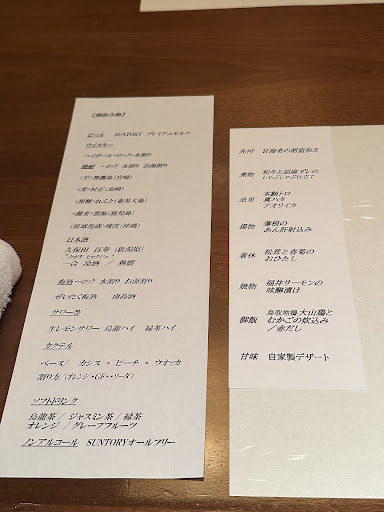 【御飲み物】
ビール SUNTORY プレミアムモルツ
ウイスキー
ハイボール・ロック・水割り
焼酎 ロック 水割り お湯割り
日本酒
久保田 百寿 (新潟県)
一合 冷酒 / 熱燗
梅酒 ロック 水割り お湯割り
ぜいたく梅酒 南高酒
サワー等
生レモンサワー 烏龍ハイ 緑茶ハイ
カクテル
ベース/ カシス ・ ピーチ ・ ウオッカ
割り方 (オレンジ・GF・・ソーダ)
ソフトドリンク
烏龍茶 / ジャスミン茶 / 緑茶
オレンジ / グレープフルーツ
ノンアルコール SUNTORYオールフリー
先付 甘海老の酒盗和え
煮物 和牛と胡麻ダレの
しゃぶしゃぶ仕立て
造里 本鮪トロ
真ハタ
アオリイカ
湯物 蓮根の
あん肝射込み
箸休 松茸と春菊の
おひたし
焼物 福井サーモンの
味醂漬け
御飯 鳥取地鶏 大山鶏と
むかごの炊込み
/赤だし
甘味 自家製デザート